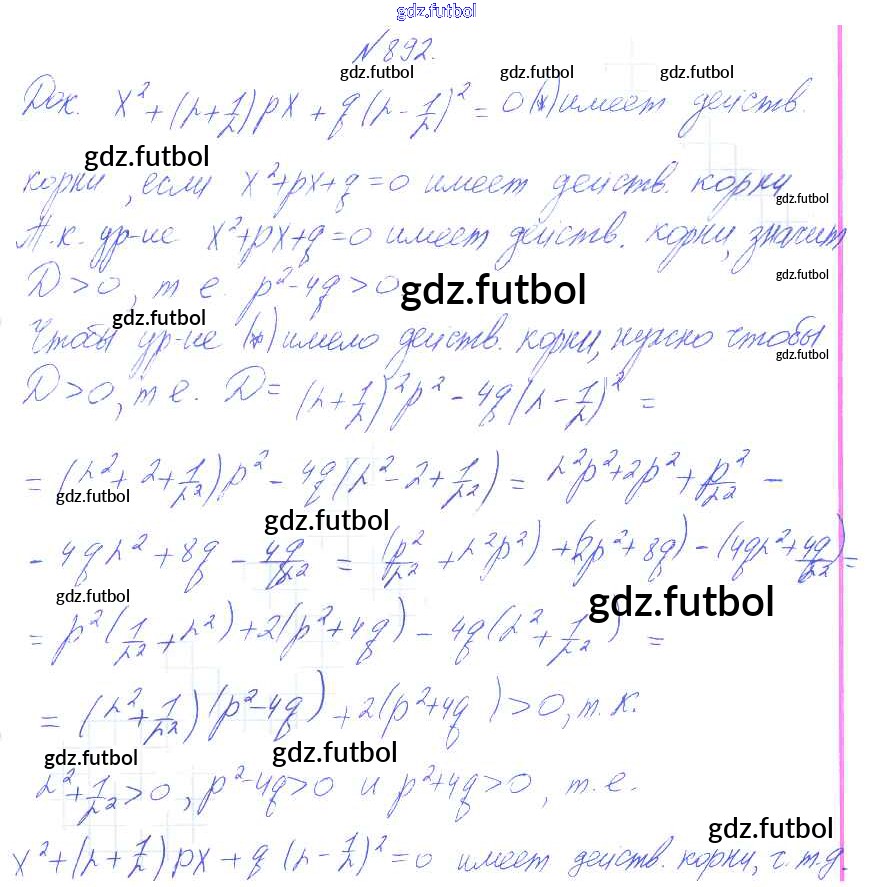 gdz.futbol
№ 892.
gdz.futbol gdz.futbol gdz.futbol
Док. x² + (r + 1/r) px + q (r - 1/r)² = 0 (*) имеет действ.
gdz.futbol
корни, если x² + px + q = 0 имеет действ. корни
gdz.futbol
Т.к. ур-ие x² + px + q = 0 имеет действ. корни, значит
D > 0, т е. p² - 4q > 0
gdz.futbol gdz.futbol
gdz.futbol
Чтобы ур-ие (*) имело действ. корни, нужно чтобы
gdz.futbol
D > 0, т е. D = (r + 1/r)² p² - 4q (r - 1/r)² =
= (r² + 2 + 1/r²) p² - 4q (r² - 2 + 1/r²) = r²p² + 2p² + p²/r² -
gdz.futbol
gdz.futbol
- 4qr² + 8q - 4q/r² = (p²/r² + r²p²) + (2p² + 8q) - (4qr² + 4q/r²) =
gdz.futbol gdz.futbol
= p² (1/r² + r²) + 2(p² + 4q) - 4q (r² + 1/r²) =
= (r² + 1/r²) (p² - 4q) + 2(p² + 4q) > 0, т. к.
gdz.futbol gdz.futbol
r² + 1/r² > 0, p² - 4q > 0 и p² + 4q > 0, т.е.
gdz.futbol
x² + (r + 1/r) px + q (r - 1/r)² = 0 имеет действ. корни, ч.т.д.